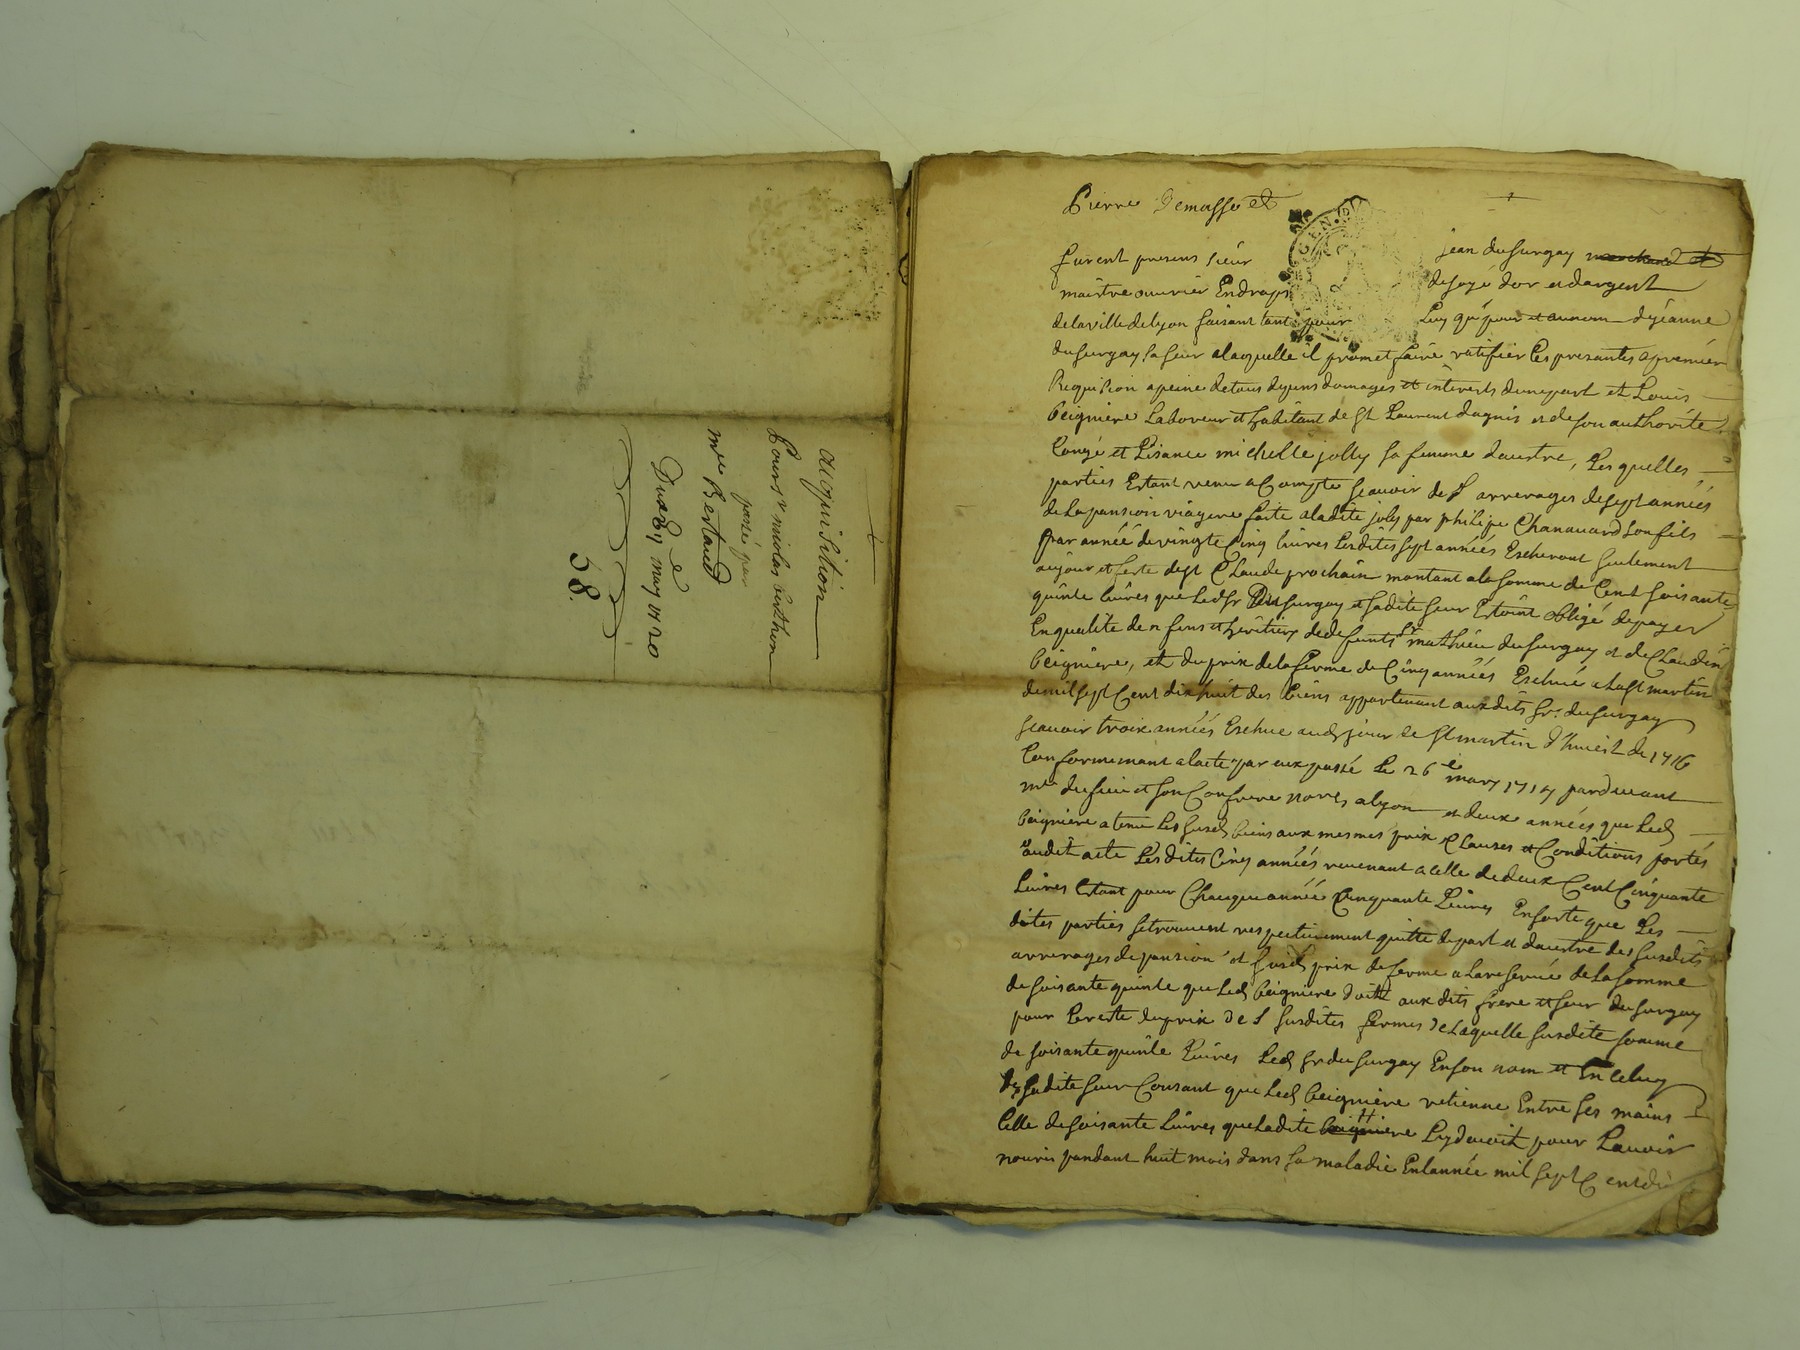 acquisition
Pour sr nicolas berthon
passé par
me Bertaud
Du 28e may 1720
58.
Pierre Demasse et
furent presens sieur jean dusurgay marchand et
maistre ouvrier En draps de soye d'or et d'argent
de la ville de lyon faisant tant pour Luy que pour et au nom de jeanne
dusurgay sa seur a laquelle il promet faire ratifier les presantes a premiere
Requision a peine de tous depuns domages et interests d'une part et Louis
beigniere Laboureur et habitant de St Laurent dagnis et de son authorité
Congé et Lisance michelle jolly sa femme daustre, Les quelles
parties Estant venu a Compte scauoir des arrerages de sept années
de La pansion viagere faite a ladite jolly par philipe Chanauard son fils
par année de vingte Cinq liures Lesdites sept années Escheront seulement
au jour et feste de st Claude prochain montant a la somme de Cent soisante
quinte liures que Led sr Dusurgay et sadite seur Estoint obligé de payer
En qualité denfans et heritiers de defunts sr mathieu dusurgay et de Claudine
beigniere, et du prix de la ferme de Cinq années Eschue a La st martin
de mil sept Cent dix huit des biens appartenant aux dits sr. dusurgay
scauoir trois années Eschue aud jour de st martin d'hiuert de 1716
Conformemant a lacte par eux passé Le 26e mars 1714 pardeuant
me dusieu et son Confrere nores a lyon et deux années que Led
beigniere a tenu Les susd biens aux mesmes prix Clauses et Conditions portés
audit acte Lesdites Cinq années reuenant a celle de deux Cent Cinquante
Liures Estant pour Chacque année Cinquante Liures En sorte que Les
dites parties se trouuent respectiuement quitte de part et daustre des susdits
arrerages de pansion et susd prix de ferme a La reserue de La somme
de soisante quinte que Led beigniere doit aux dits frere et seur dusurgay
pour Le reste du prix des susdites fermes de Laquelle susdite somme
de soisante quinte Liures Led sr dusurgay En son nom et En celuy
de sadite seur Consant que Led beigniere retienne Entre ses mains
Celle de soisante Liures que Ladite beigniere Luy deuoit pour Lauoir
nouris pandant huit mois dans sa maladie En lannée mil sept Cent dix